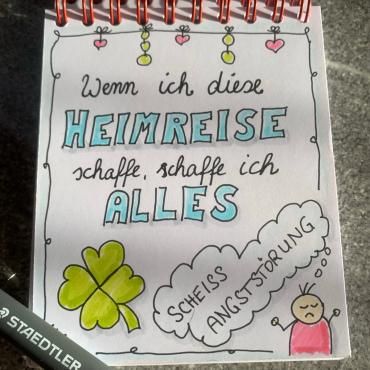 Wenn ich diese
HEIMREISE
schaffe, schaffe ich
ALLES
SCHEISS
ANGSTSTÖRUNG
STAEDTLER